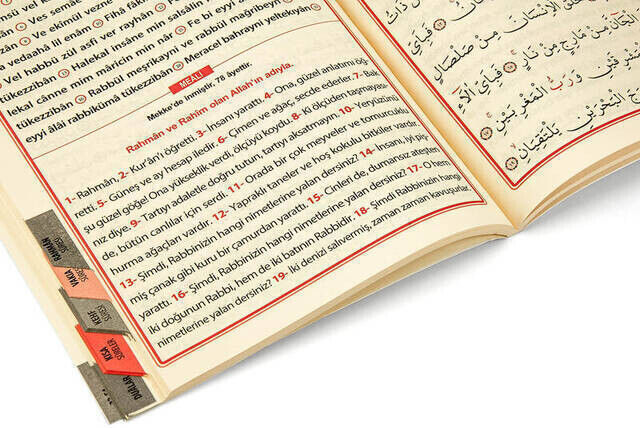 Ves semâe
Ve ekimül vezne
Fîhâ fâkih
vedaahâ lil enâm
Vel habbü zül asfi ver rayhân
Fe bi eyyi
tükezzibân
Halekal insâne min salsâlin
lekal cânne mim mâricin min nâr
tükezzibân
Rabbül meşrikayni ve rabbül mağribeyn
eyyi âlâi rabbikümâ tükezzibân
Meracel bahrayni yeltekıyân
MEALİ
Mekke'de inmiştir. 78 âyettir.
Rahmân ve Rahîm olan Allah'ın adıyla.
1- Rahmân, 2- Kur'ân'ı öğretti. 3- İnsanı yarattı. 4- Ona, güzel anlatımı öğ-
retti. 5- Güneş ve ay hesap iledir. 6- Çimen ve ağaç, secde ederler. 7- Bak
şu güzel göğe! Ona yükseklik verdi, ölçüyü koydu. 8- Ki ölçüden taşmaya-
nız diye. 9- Tartıyı adaletle doğru tutun, tartıyı aksatmayın. 10- Yeryüzünü
de, bütün canlılar için serdi. 11- Orada bir çok meyveler ve tomurcuklu
hurma ağaçları vardır. 12- Yapraklı taneler ve hoş kokulu bitkiler vardır.
13- Şimdi, Rabbinizin hangi nimetlerine yalan dersiniz? 14- İnsanı, iyi piş-
miş çanak gibi kuru bir çamurdan yarattı. 15- Cinleri de, dumansız ateşten
yarattı. 16- Şimdi, Rabbinizin hangi nimetlerine yalan dersiniz? 17- O hem
iki doğunun Rabbi, hem de iki batının Rabbidir. 18- Şimdi Rabbinizin hangi
nimetlerine yalan dersiniz? 19- İki denizi salıvermiş, zaman zaman kavuşurlar.
RAHMÂN SÛRESİ
VAKIA SÛRESİ
KEHF SÛRESİ
KISA SÛRELER
DUALAR
ذَاتُ
الْاِنْسَانَ مِنْ صَلْصَالٍ
فَبِاَىِّ
الْجَٓانَّ مِنْ مَارِجٍ مِنْ نَارٍ
رَبُّ الْمَغْرِبَيْنِ
فَبِاَىِّ اٰلَٓاءِ
الْبَحْرَيْنِ يَلْتَقِيَانِ